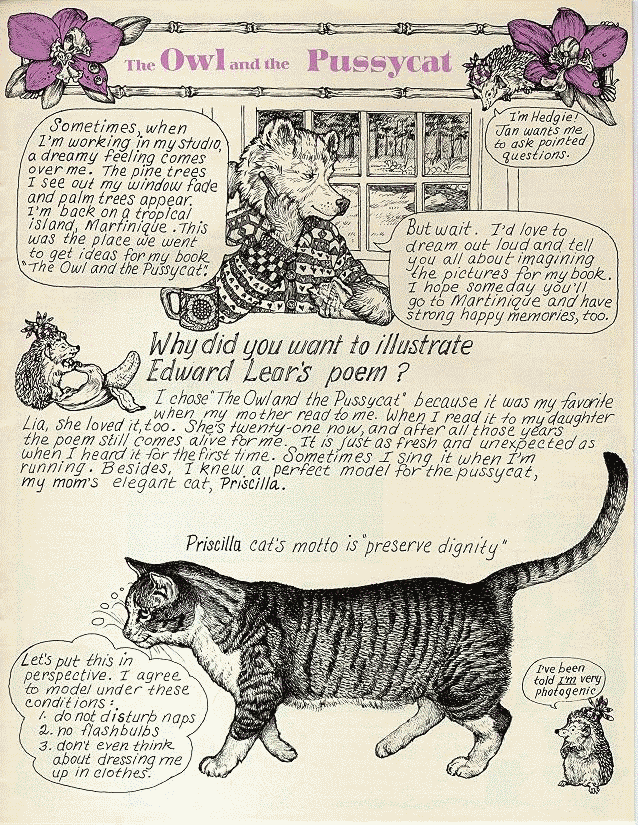 The Owl and the Pussycat
I'm Hedgie!
Jan wants me
to ask pointed
questions.
Sometimes, when
I'm working in my studio,
a dreamy feeling comes
over me. The pine trees
I see out my window fade
and palm trees appear.
I'm back on a tropical
island, Martinique. This
was the place we went
to get ideas for my book
"The Owl and the Pussycat".
But wait. I'd love to
dream out loud and tell
you all about imagining
the pictures for my book.
I hope someday you'll
go to Martinique and have
strong happy memories, too.
Why did you want to illustrate
Edward Lear's poem?
I chose "The Owl and the Pussycat" because it was my favorite
when my mother read to me. When I read it to my daughter
Lia, she loved it, too. She's twenty-one now, and after all those years
the poem still comes alive for me. It is just as fresh and unexpected as
when I heard it for the first time. Sometimes I sing it when I'm
running. Besides, I knew a perfect model for the pussycat,
my mom's elegant cat, Priscilla.
Priscilla cat's motto is "preserve dignity"
Let's put this in
perspective. I agree
to model under these
conditions:
1. do not disturb naps
2. no flashbulbs
3. don't even think
about dressing me
up in clothes.
I've been
told I'm very
photogenic